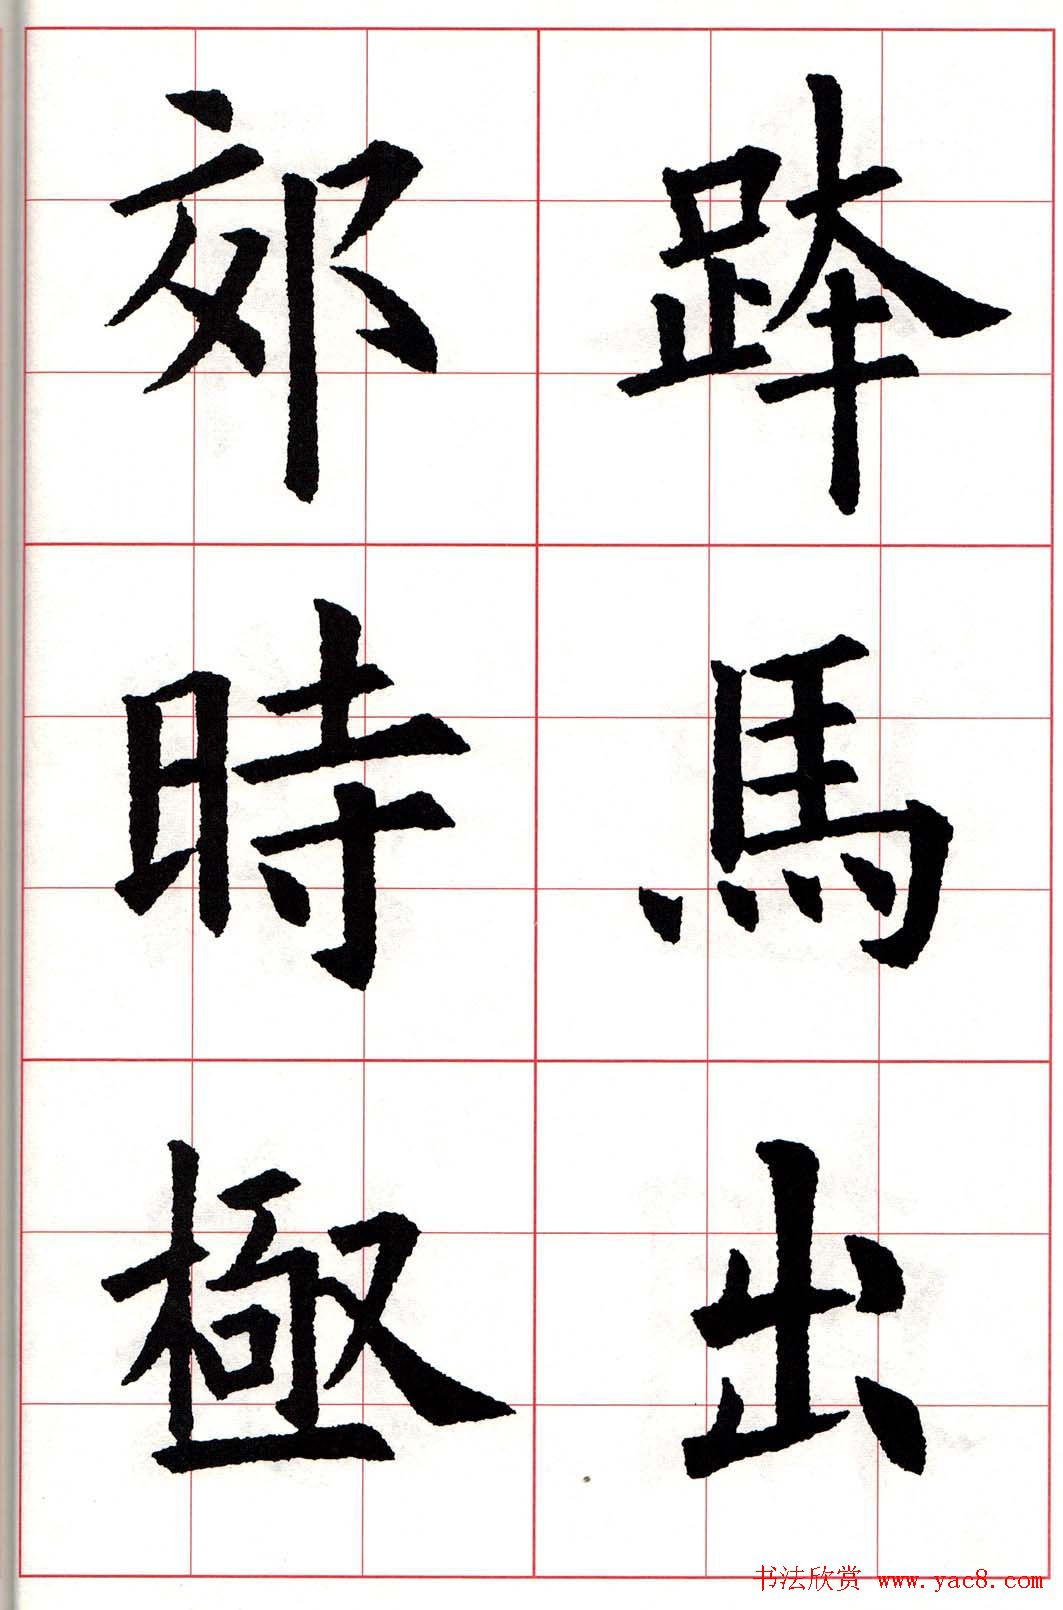 跨馬出
郊時極
书法欣赏 www.yac8.com